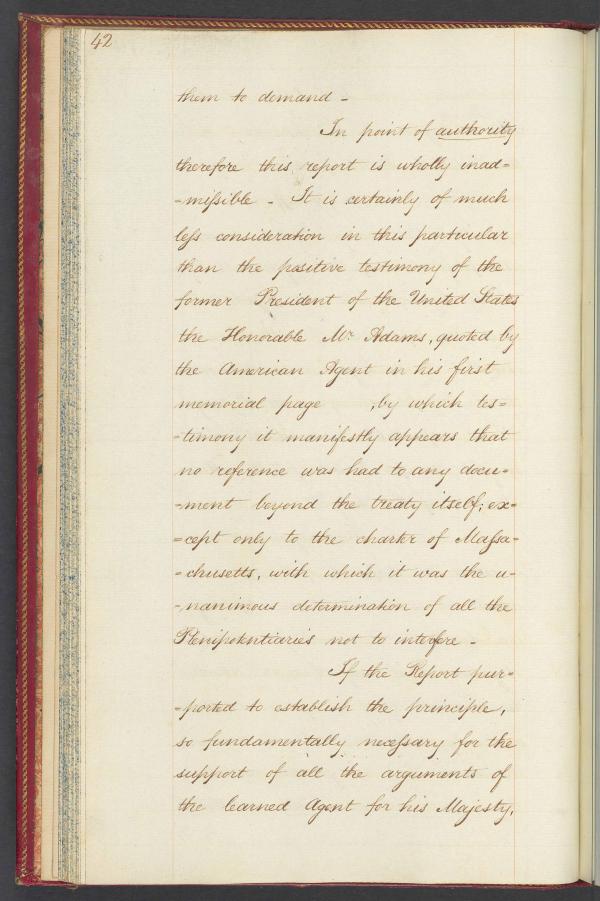 42
them to demand -
In point of authority
therefore this report is wholly inad=
=miſsible - It is certainly of much
leſs consideration in this particular
than the positive testimony of the
former President of the United States
the Honorable Mr. Adams, quoted by
the American Agent in his first
memorial page , by which tes=
=timony it manifestly appears that
no reference was had to any docu=
=ment beyond the treaty itself; ex=
=cept only to the charter of Maſsa=
=chusetts, with which it was the u=
=nanimous determination of all the
Plenipotentiaries not to interfere -
If the Report pur=
=ported to establish the principle,
so fundamentally neceſsary for the
support of all the arguments of
the learned Agent for his Majesty,